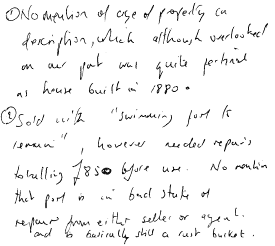 ① No mention of age of property in
description, which although overlooked
on our part was quite pertinent
as house built in 1880.
② Sold with "swimming pool to
remain", however needed repairs
totalling £850 before use. No mention
that pool is in bad state of
repair from either seller or agent.
and is basically still a rust bucket.